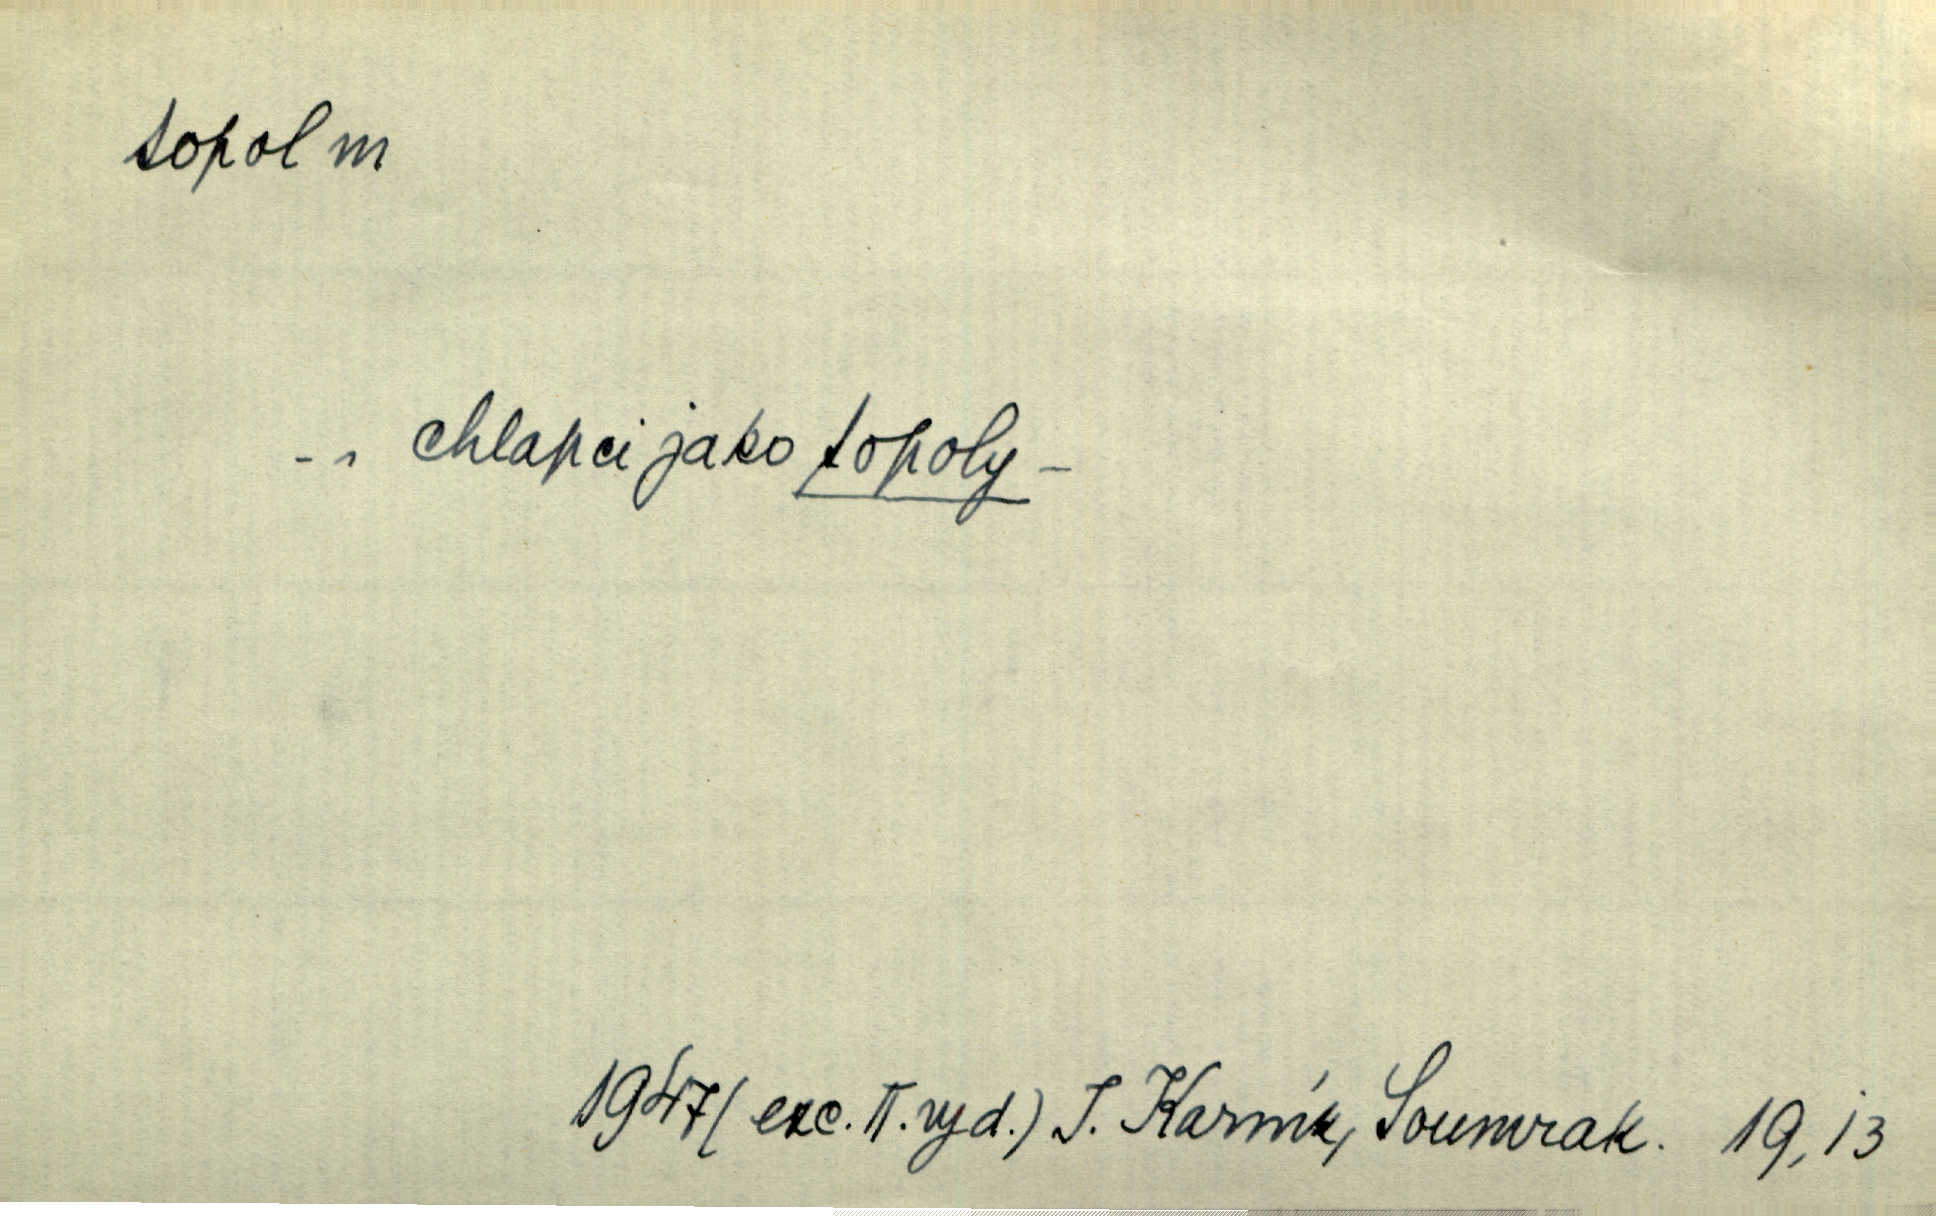 topol m
-„ chlapci jako topoly -
1947 (exc. II. vyd.) J. Karník, Soumrak. 19, 13